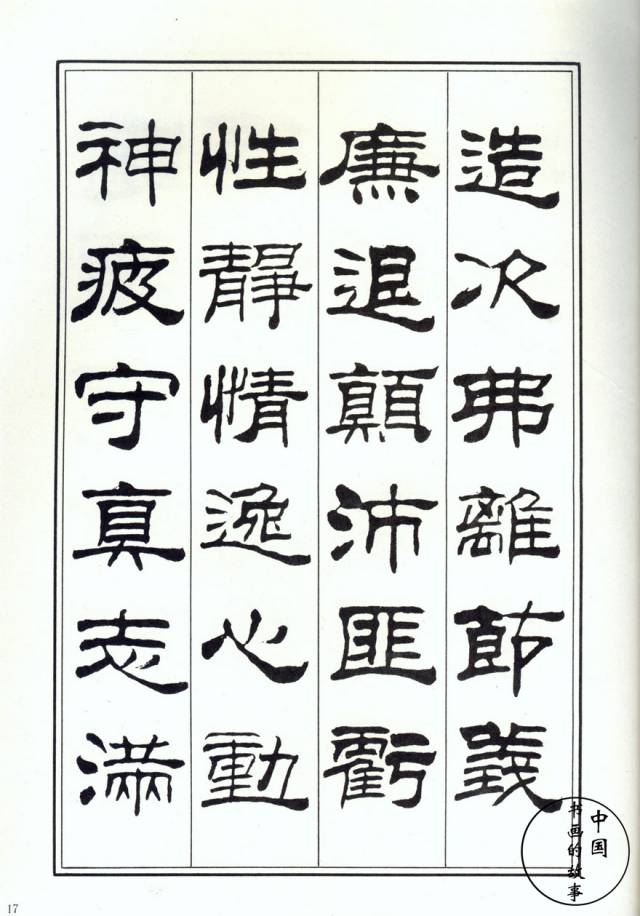 造次弗離節義
廉退顛沛匪虧
性靜情逸心動
神疲守真志滿
中国
书画的故事
17